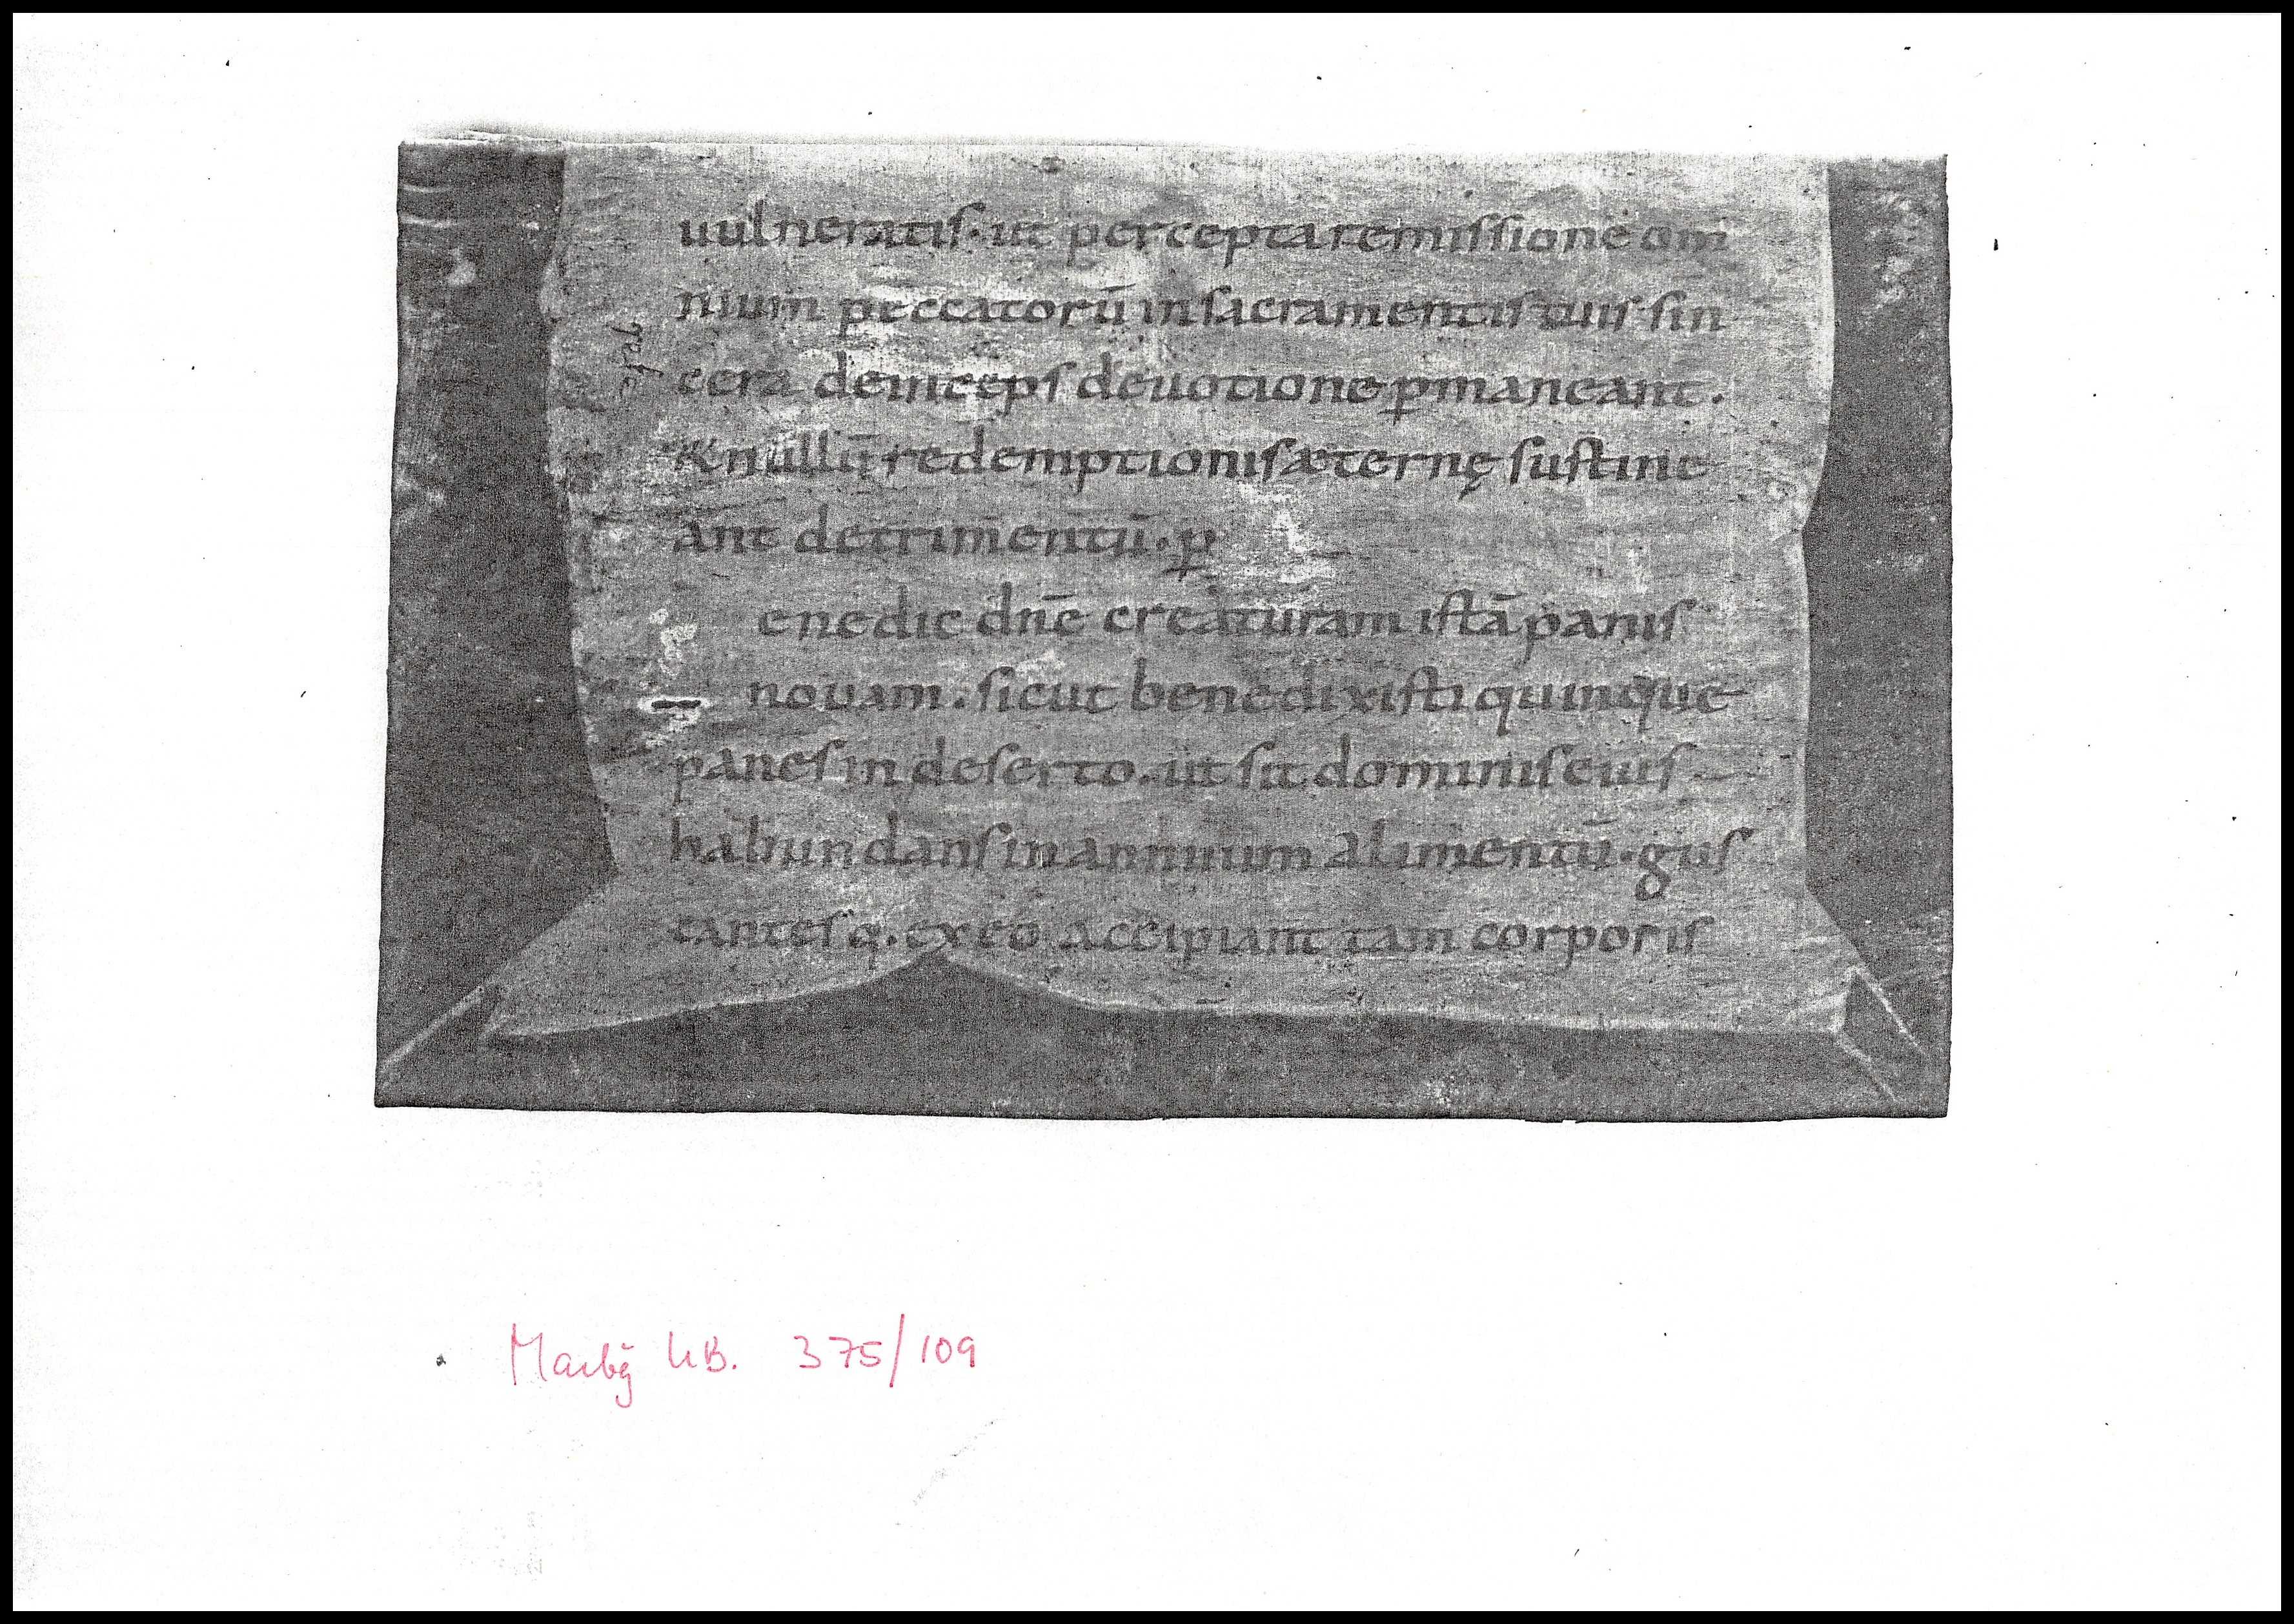 uulneratis. ut percepta remissione om
nium peccatorū in sacramentis tuis sin
cera deinceps deuotione ꝑmaneant.
& nullū redemptionis æternę sustine
ant detrimentū. ꝑ
enedic dnē creaturam istā panis
nouam. sicut benedixisti quinque
panes in deserto. ut sit dominis eius
habundans in annuum alimentū. gus
tantesq. ex eo accipiant tam corporis
Marbg UB. 375/109